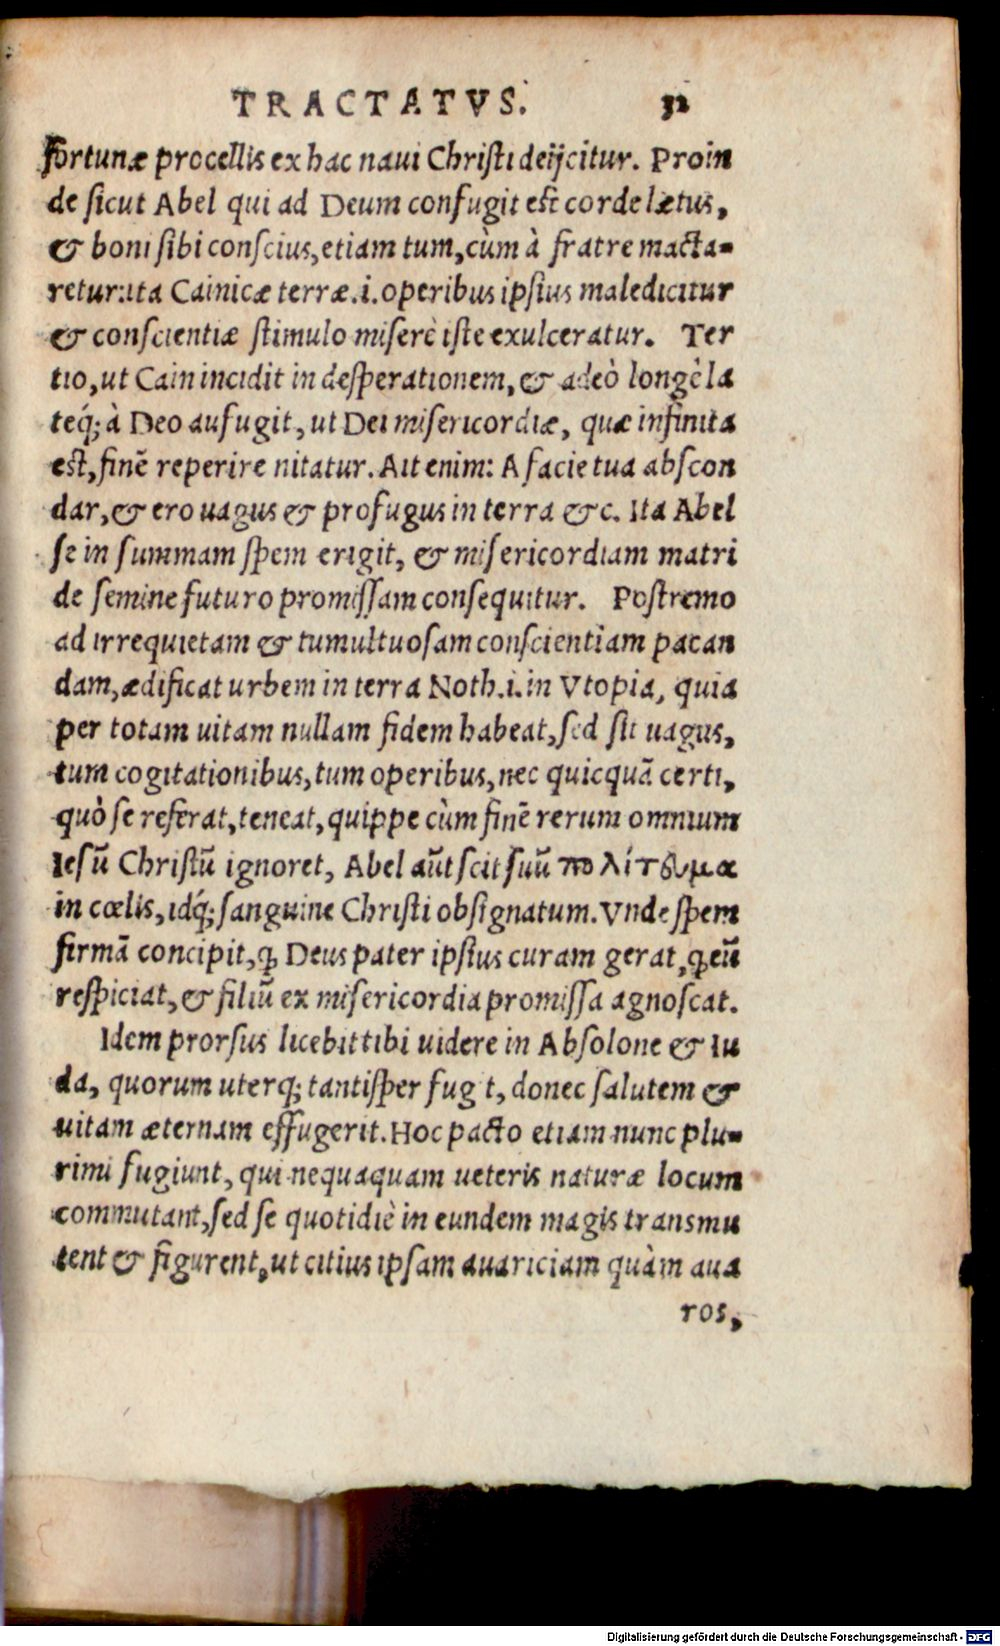 TRACTATVS. 32
fortunæ procellis ex hac naui Christi deijcitur. Proin
de sicut Abel qui ad Deum confugit est corde lætus,
& boni sibi conscius, etiam tum, cùm à fratre macta-
retur: ita Cainicæ terræ .i. operibus ipsius maledicitur
& conscientiæ stimulo miserè iste exulceratur. Ter
tio, ut Cain incidit in desperationem, & adeò longè la
teq́; à Deo aufugit, ut Dei misericordiæ, quæ infinita
est, finē reperire nitatur. Ait enim: A facie tua abscon
dar, & ero uagus & profugus in terra &c. Ita Abel
se in summam spem erigit, & misericordiam matri
de semine futuro promissam consequitur. Postremo
ad irrequietam & tumultuosam conscientiam pacan
dam, ædificat urbem in terra Noth .i. in Vtopia, quia
per totam uitam nullam fidem habeat, sed sit uagus,
tum cogitationibus, tum operibus, nec quicquā certi,
quò se referat, teneat, quippe cùm finē rerum omnium
Iesū Christū ignoret, Abel aūt scit suū πολίτευμα
in cœlis, idq́; sanguine Christi obsignatum. Vnde spem
firmā concipit, ꝙ Deus pater ipsius curam gerat, ꝙ eū
respiciat, & filiū ex misericordia promissa agnoscat.
Idem prorsus licebit tibi uidere in Absolone & Iu
da, quorum uterq; tantisper fug t, donec salutem &
uitam æternam effugerit. Hoc pacto etiam nunc plu-
rimi fugiunt, qui nequaquam ueteris naturæ locum
commutant, sed se quotidiè in eundem magis transmu
tent & figurent, ut citius ipsam auariciam quàm aua
ros,
Digitalisierung gefördert durch die Deutsche Forschungsgemeinschaft - DFG